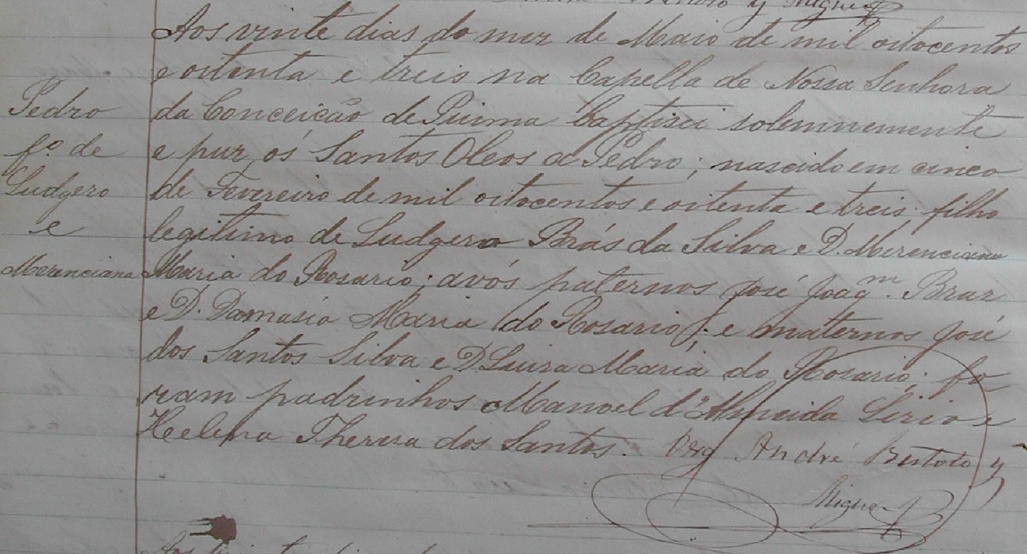 y Migue
Aos vinte dias do mez de Maio de mil oitocentos
e oitenta e treis na Capella de Nossa Senhora
da Conceição de Piuma baptisei solemnemente
e puz os Santos Oleos a Pedro; nascido em cinco
de Fevereiro de mil oitocentos e oitenta e treis filho
legitimo de Ludgero Brás da Silva e D. Merenciana
Maria do Rosario; avós paternos José Joaqm. Braz
e D. Damasia Maria do Rosario; e maternos José
dos Santos Silva e D. Luiza Maria do Rosario; fo-
ram padrinhos Manoel d'Almeida Lirio e
Helena Thereza dos Santos. André y
Migue
Pedro
fo. de
Ludgero
e
Merenciana